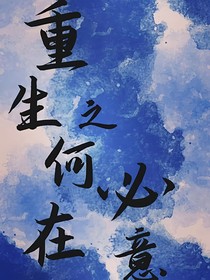 重
生之
何必
在意